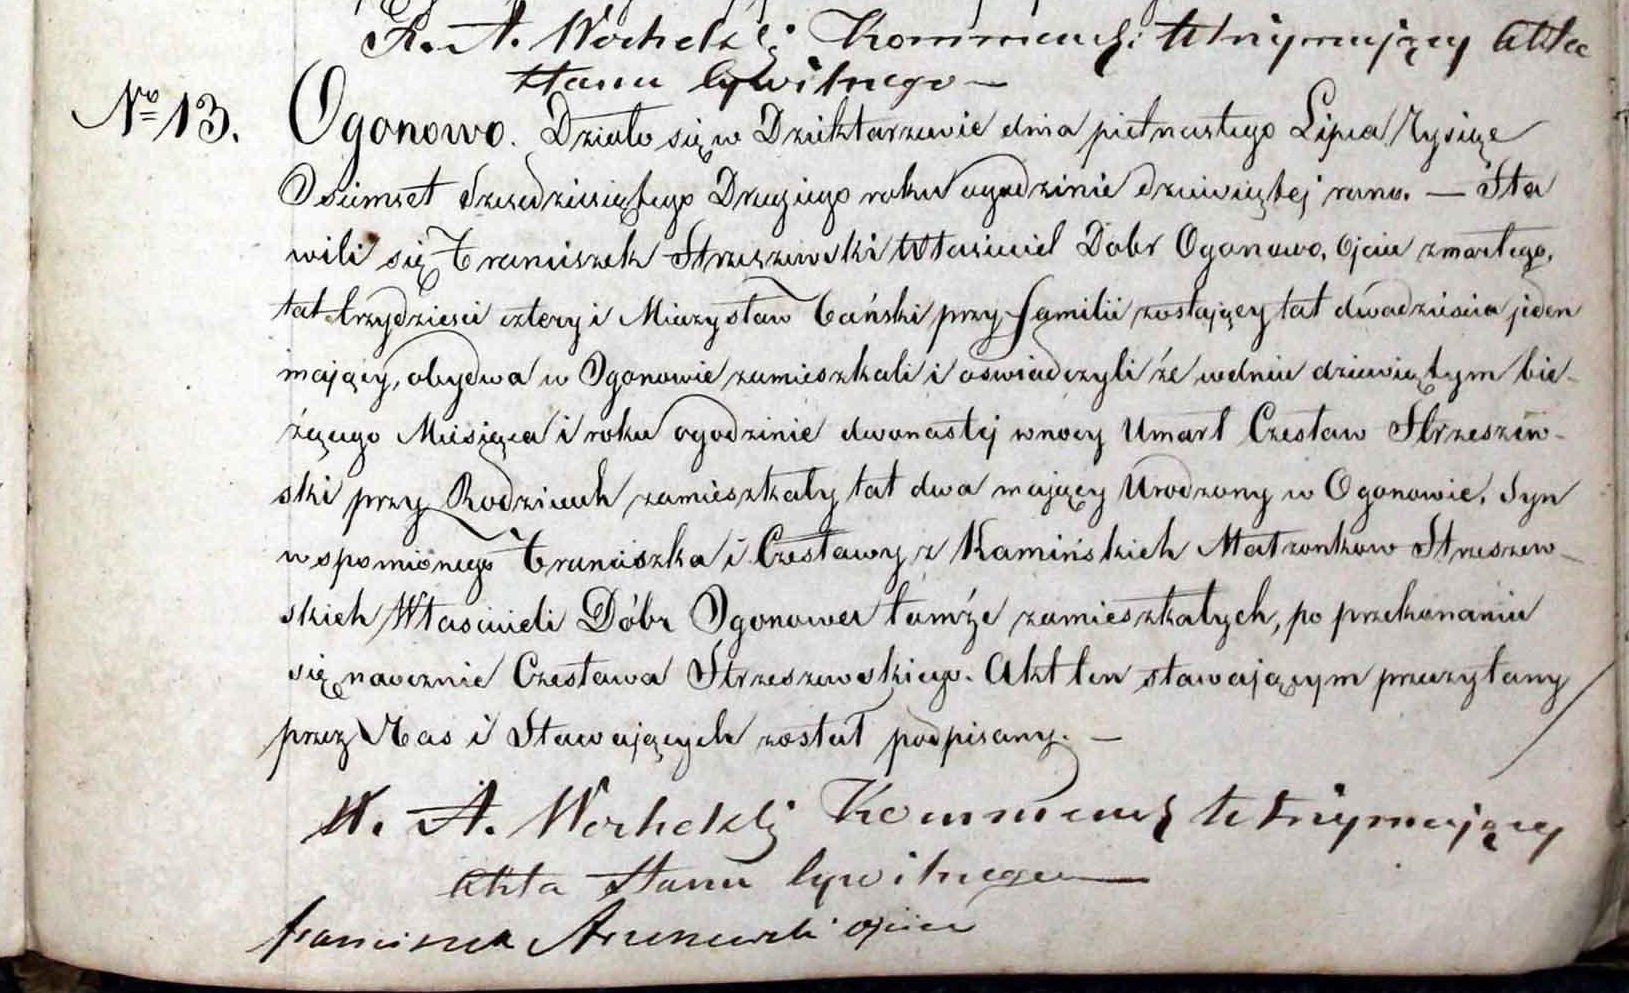 A. Kommendz utrzymujący akta
stanu cywilnego —
No 13. Ogonowo. Działo się w Dziektarzewie dnia piętnastego Lipca Tysiąc
Ośimset Szesdziesiątego Drugiego roku ogodzinie dziewiątej rano. — Sta
wili się Franciszek Strzeszewski Własciciel Dobr Ogonowo, Ojciec zmarłego,
lat trzydziesci cztery i Mieczysław Łański przy familii zostający lat dwadziescia jeden
mający, obydwa w Ogonowie zamieszkali i oswiadczyli że wdniu dziewiątym bie-
żącego Miesiąca i roku ogodzinie dwonastej wnocy Umarł Czesław Strzeszew-
ski przy Rodzicach zamieszkały lat dwa mający Urodzony w Ogonowie, Syn
wspomionego Franciszka i Czesławy z Kamińskich Małzonkow Strzeszew-
skich Własicieli Dóbr Ogonowa tamże zamieszkałych, po przekonaniu
się naocznie Czesława Strzeszewskiego. Akt ten stawającym przeczytany
przez Nas i Stawających został podpisany. —
A. Kommendz utrzymujący
akta stanu cywilnego —
Franciszek Strzeszewski ojciec